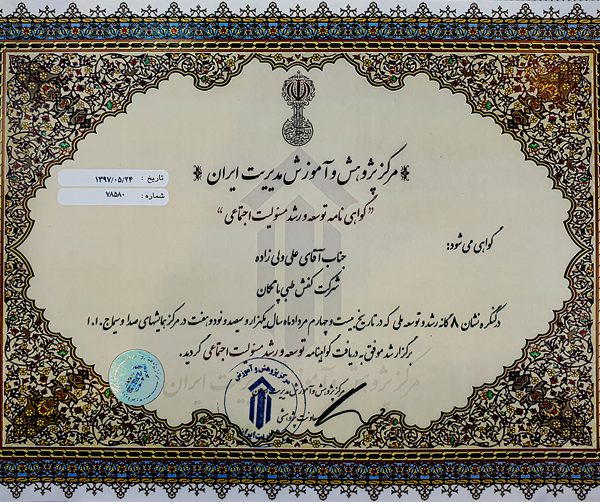 مرکز پژوهش و آموزش مدیریت ایران
تاریخ : ۱۳۹۷/۰۵/۲۴
شماره : ۷۸۵۸۰
"گواهی نامه توسعه و رشد مسئولیت اجتماعی"
گواهی می شود:
جناب آقای علی ولی زاده
شرکت کفش طبی پاتکان
در کنگره نشان ۸ گانه رشد و توسعه ملی که در تاریخ بیست و چهارم مرداد ماه سال یکهزار و سیصد و نود و هفت در مرکز همایشهای صدا و سیما ج.ا.ا
برگزار شد موفق به دریافت گواهینامه توسعه و رشد مسئولیت اجتماعی گردید.
مرکز پژوهش و آموزش مدیریت ایران
مرکز پژوهش و آموزش
مرکز پژوهش و آموزش مدیریت ایران